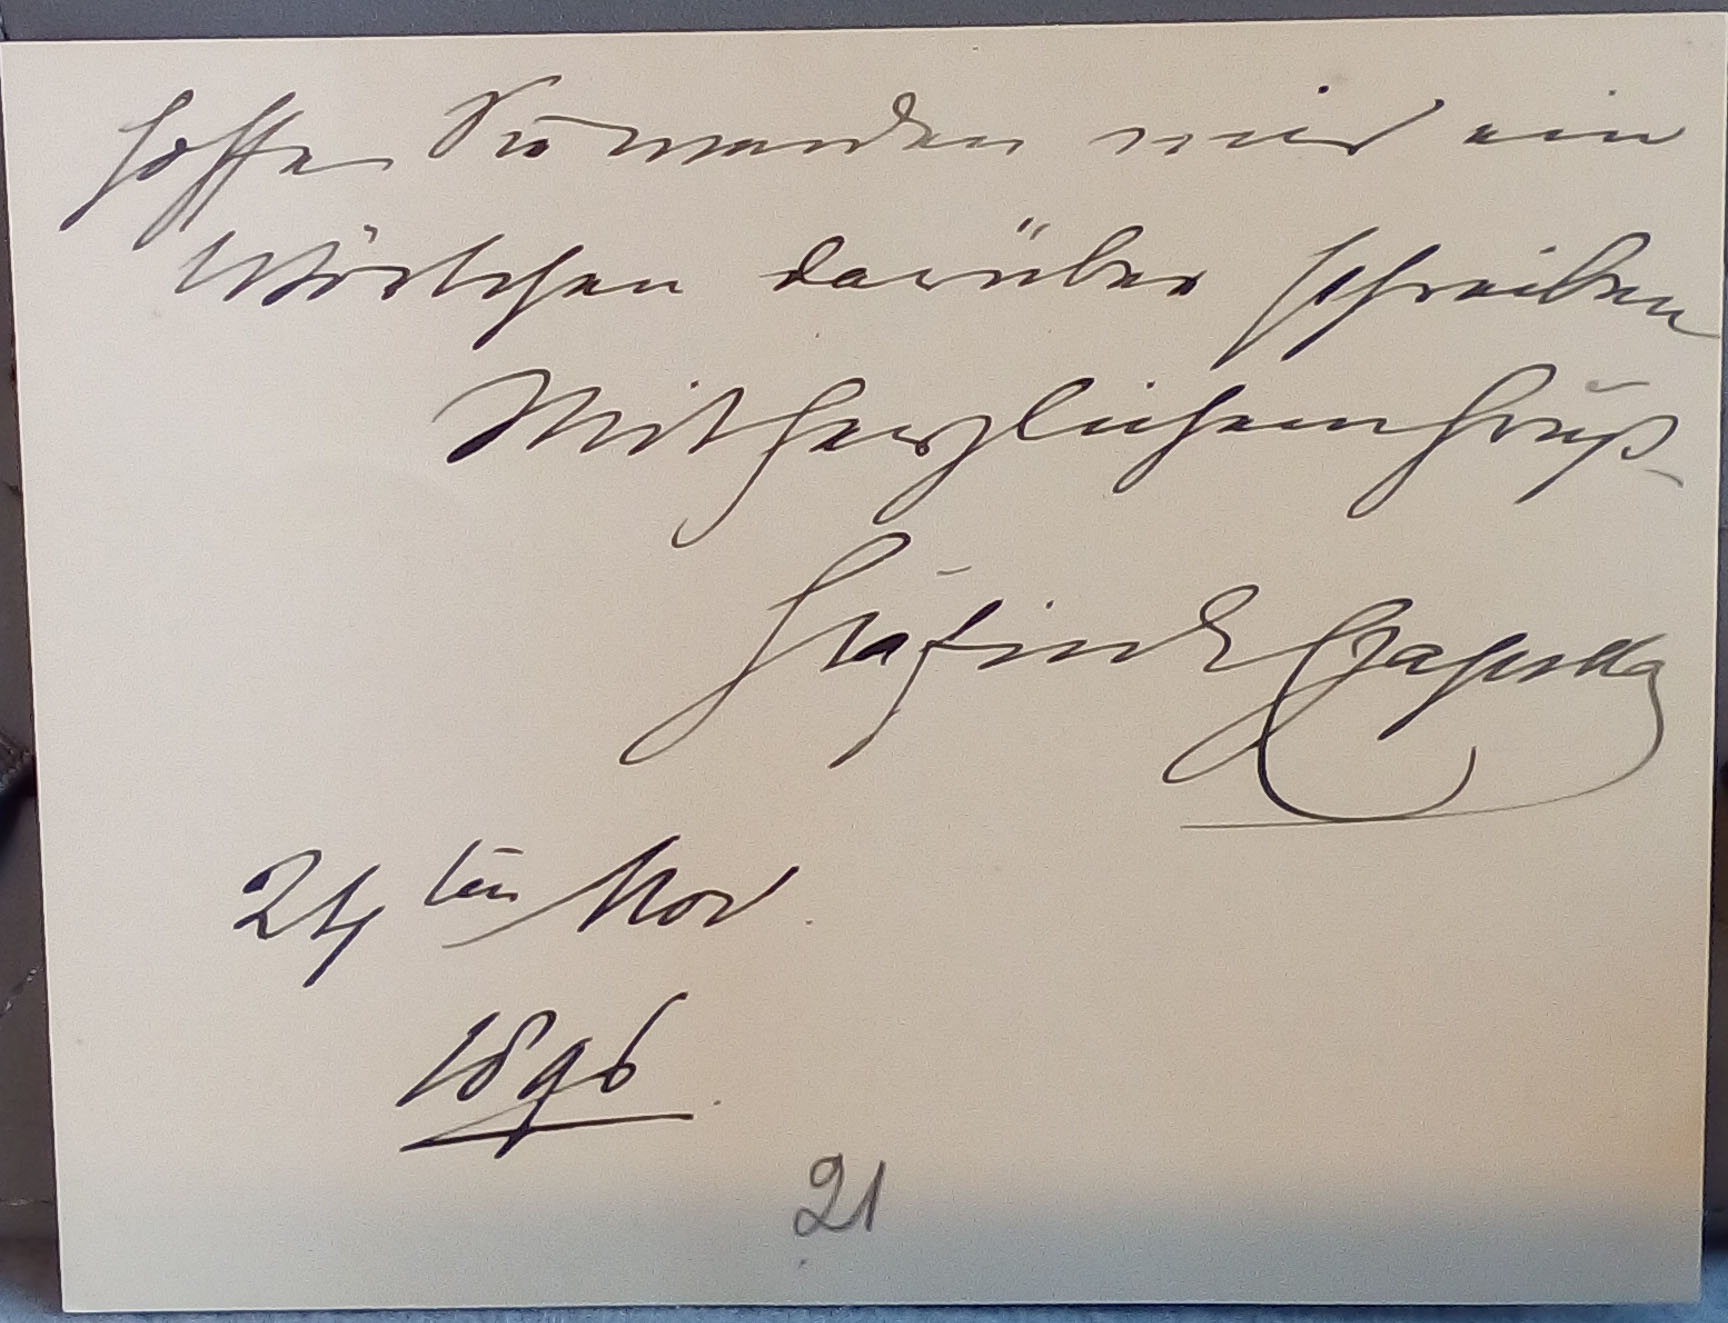 hoffe Sie werden mir ein
Wörtchen darüber schreiben
Mit herzlichem Gruß
Gräfin
24ten Nov.
1896.
21